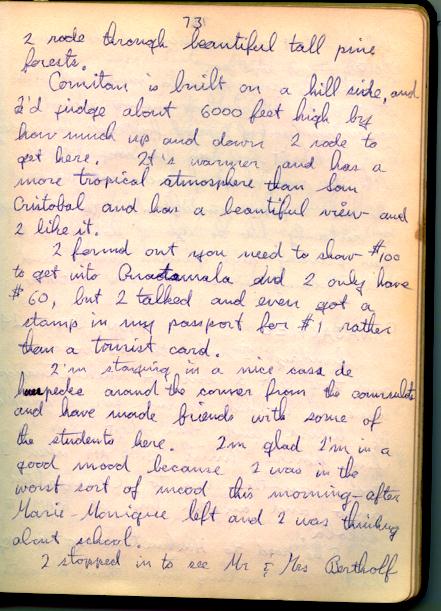 73
I rode through beautiful tall pine
forests.
Comitan is built on a hill side, and
I'd judge about 6000 feet high by
how much up and down I rode to
get here. It's warmer and has a
more tropical atmosphere than San
Cristobal and has a beautiful view and
I like it.
I found out you need to show $100
to get into Guatamala and I only have
$60, but I talked and even got a
stamp in my passport for $1 rather
than a tourist card.
I'm staying in a nice casa de
huespedes around the corner from the consulate
and have made friends with some of
the students here. I'm glad I'm in a
good mood because I was in the
worst sort of mood this morning-after
Marie-Monique left and I was thinking
about school.
I stopped in to see Mr & Mrs Bertholf